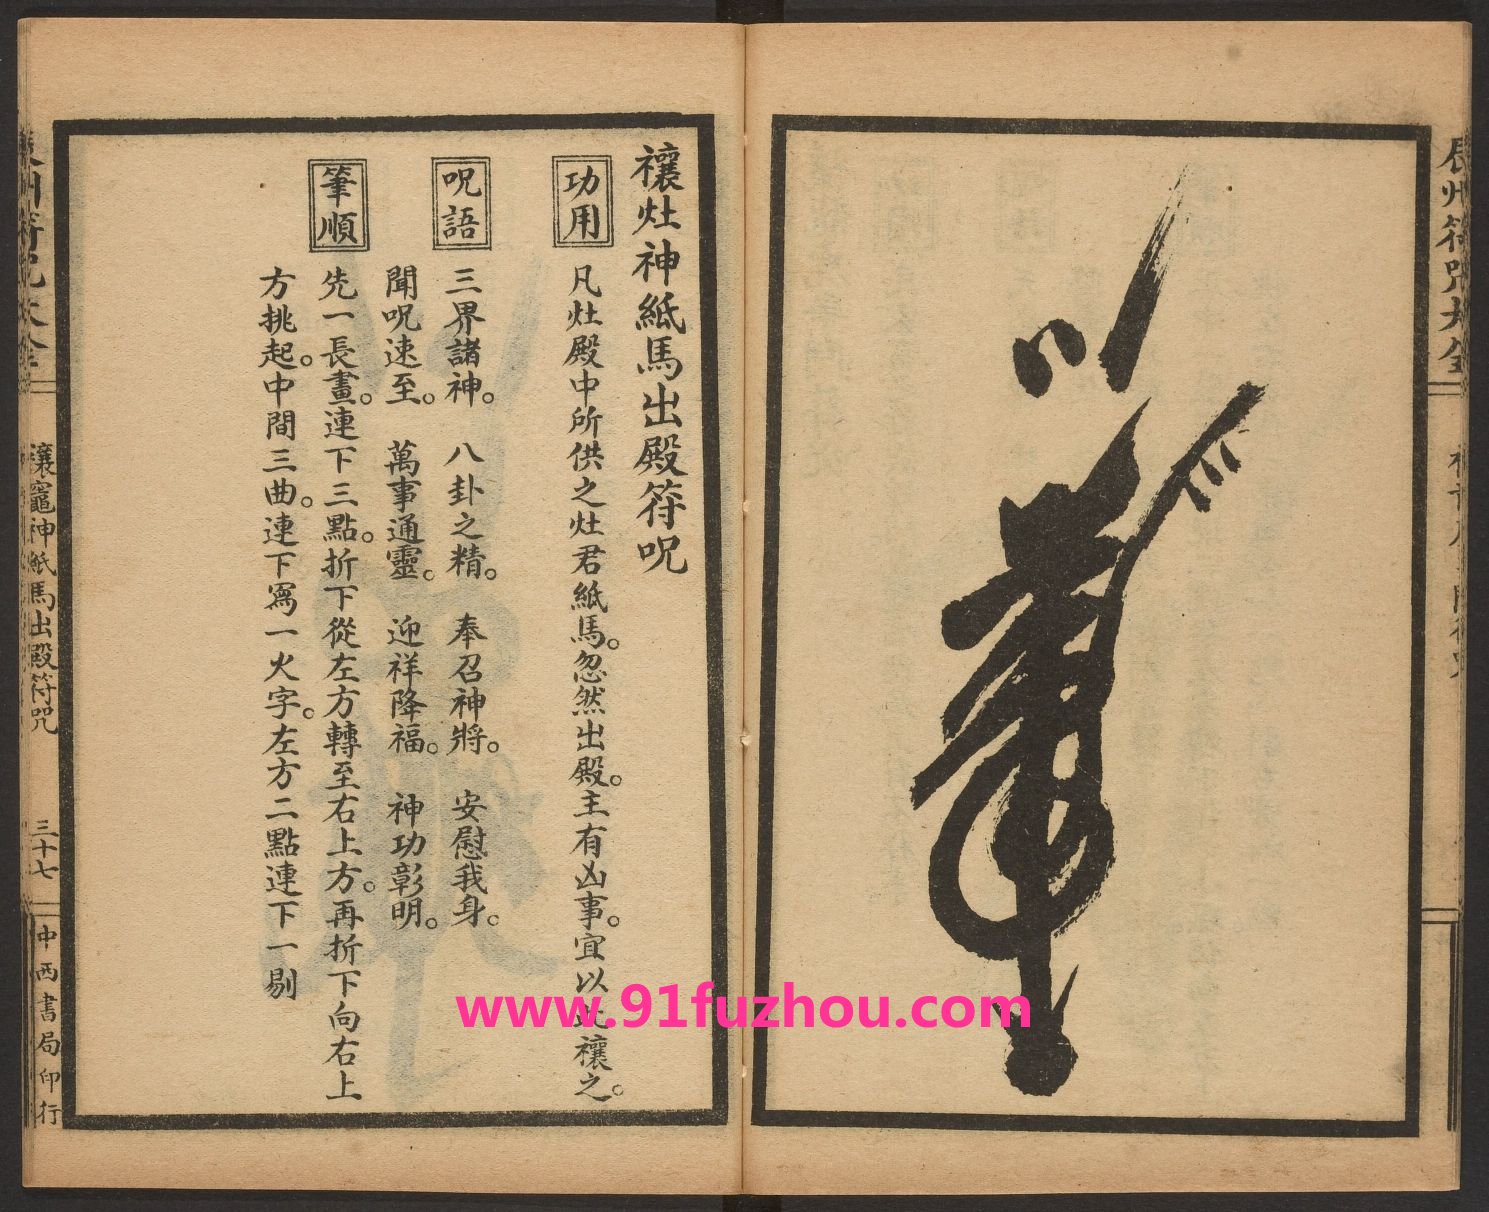 辰州符咒大全
禳灶神紙馬出殿符呪
功用
凡灶殿中所供之灶君紙馬。忽然出殿。主有凶事。宜以此禳之。
呪語
三界諸神。八卦之精。奉召神將。安慰我身。
聞呪速至。萬事通靈。迎祥降福。神功彰明。
筆順
先一長畫。連下三點。折下從左方轉至右上方。再折下向右上
方挑起。中間三曲。連下寫一火字。左方二點連下一剔
符咒大全
禳竈神紙馬出殿符咒
三十七
中西書局印行
www.91fuzhou.com